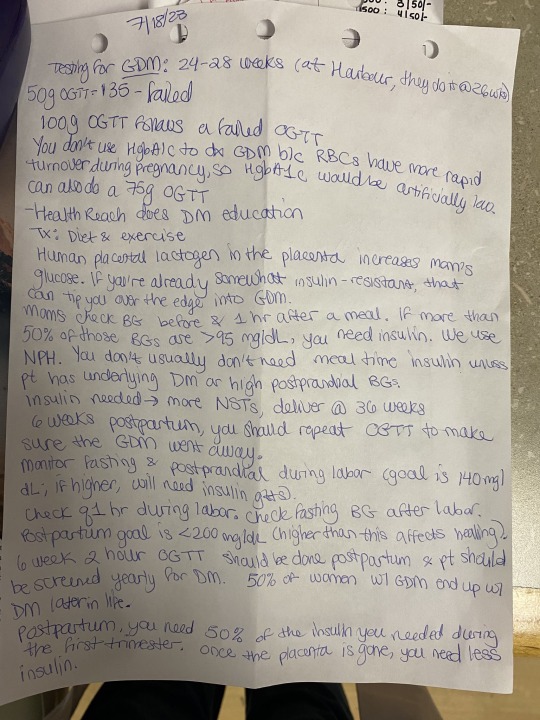 3/50/-
500: 4/50/-
7/18/23
Testing for GDM: 24-28 weeks (at Harbour, they do it @ 26wks)
50g OGTT = 135 - failed
100g OGTT follows a failed OGTT
You don't use HgbA1c to dx GDM b/c RBCs have more rapid
turnover during pregnancy, so HgbA1c would be artificially low.
can also do a 75g OGTT
- Health Reach does DM education
Tx: Diet & exercise
Human placental lactogen in the placenta increases mom's
glucose. If you're already somewhat insulin-resistant, that
can tip you over the edge into GDM.
Moms check BG before & 1 hr after a meal. If more than
50% of those BGs are >95 mg/dL, you need insulin. We use
NPH. You don't usually don't need meal time insulin unless
pt has underlying DM or high postprandial BGs.
Insulin needed → more NSTs, deliver @ 36 weeks
6 weeks postpartum, you should repeat OGTT to make
sure the GDM went away.
Monitor fasting & postprandial during labor (goal is 140 mg/
dL; if higher, will need insulin gtts).
Check q1 hr during labor. Check fasting BG after labor.
Postpartum goal is <200 mg/dL (higher than this affects healing)
6 week 2 hour OGTT should be done postpartum & pt should
be screened yearly for DM. 50% of women w/ GDM end up w/
DM later in life.
Postpartum, you need 50% of the insulin you needed during
the first trimester. Once the placenta is gone, you need less
insulin.